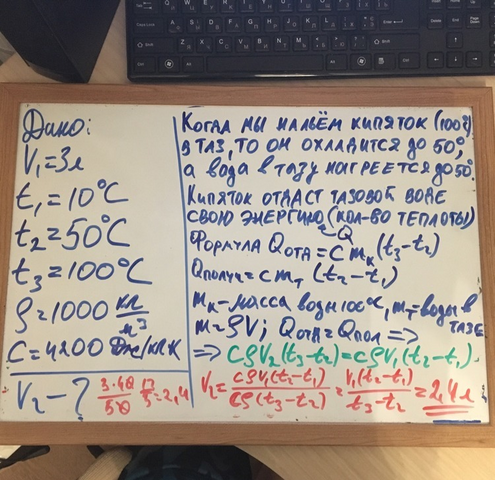 Дано:
V₁=3л
t₁=10°C
t₂=50°C
t₃=100°C
ρ=1000 кг/м³
C=4200 Дж/кгК
V₂-? 3·40/50 12/5=2,4
Когда мы нальём кипяток (100°)
в таз, то он охладится до 50°,
а вода в тазу нагреется до 50°.
Кипяток отдаст тазовой воде
свою энергию (кол-во теплоты)
Q
Формула Qотд=C mк (t₃-t₂)
Qполуч=cmт (t₂-t₁)
mк-масса воды 100°C, mт-воды в
тазе
m=ρV; Qотд=Qпол =>
=> CρV₂(t₃-t₂)=CρV₁(t₂-t₁)
V₂=cρV₁(t₂-t₁)/cρ(t₃-t₂)=V₁(t₂-t₁)/t₃-t₂=2,4л